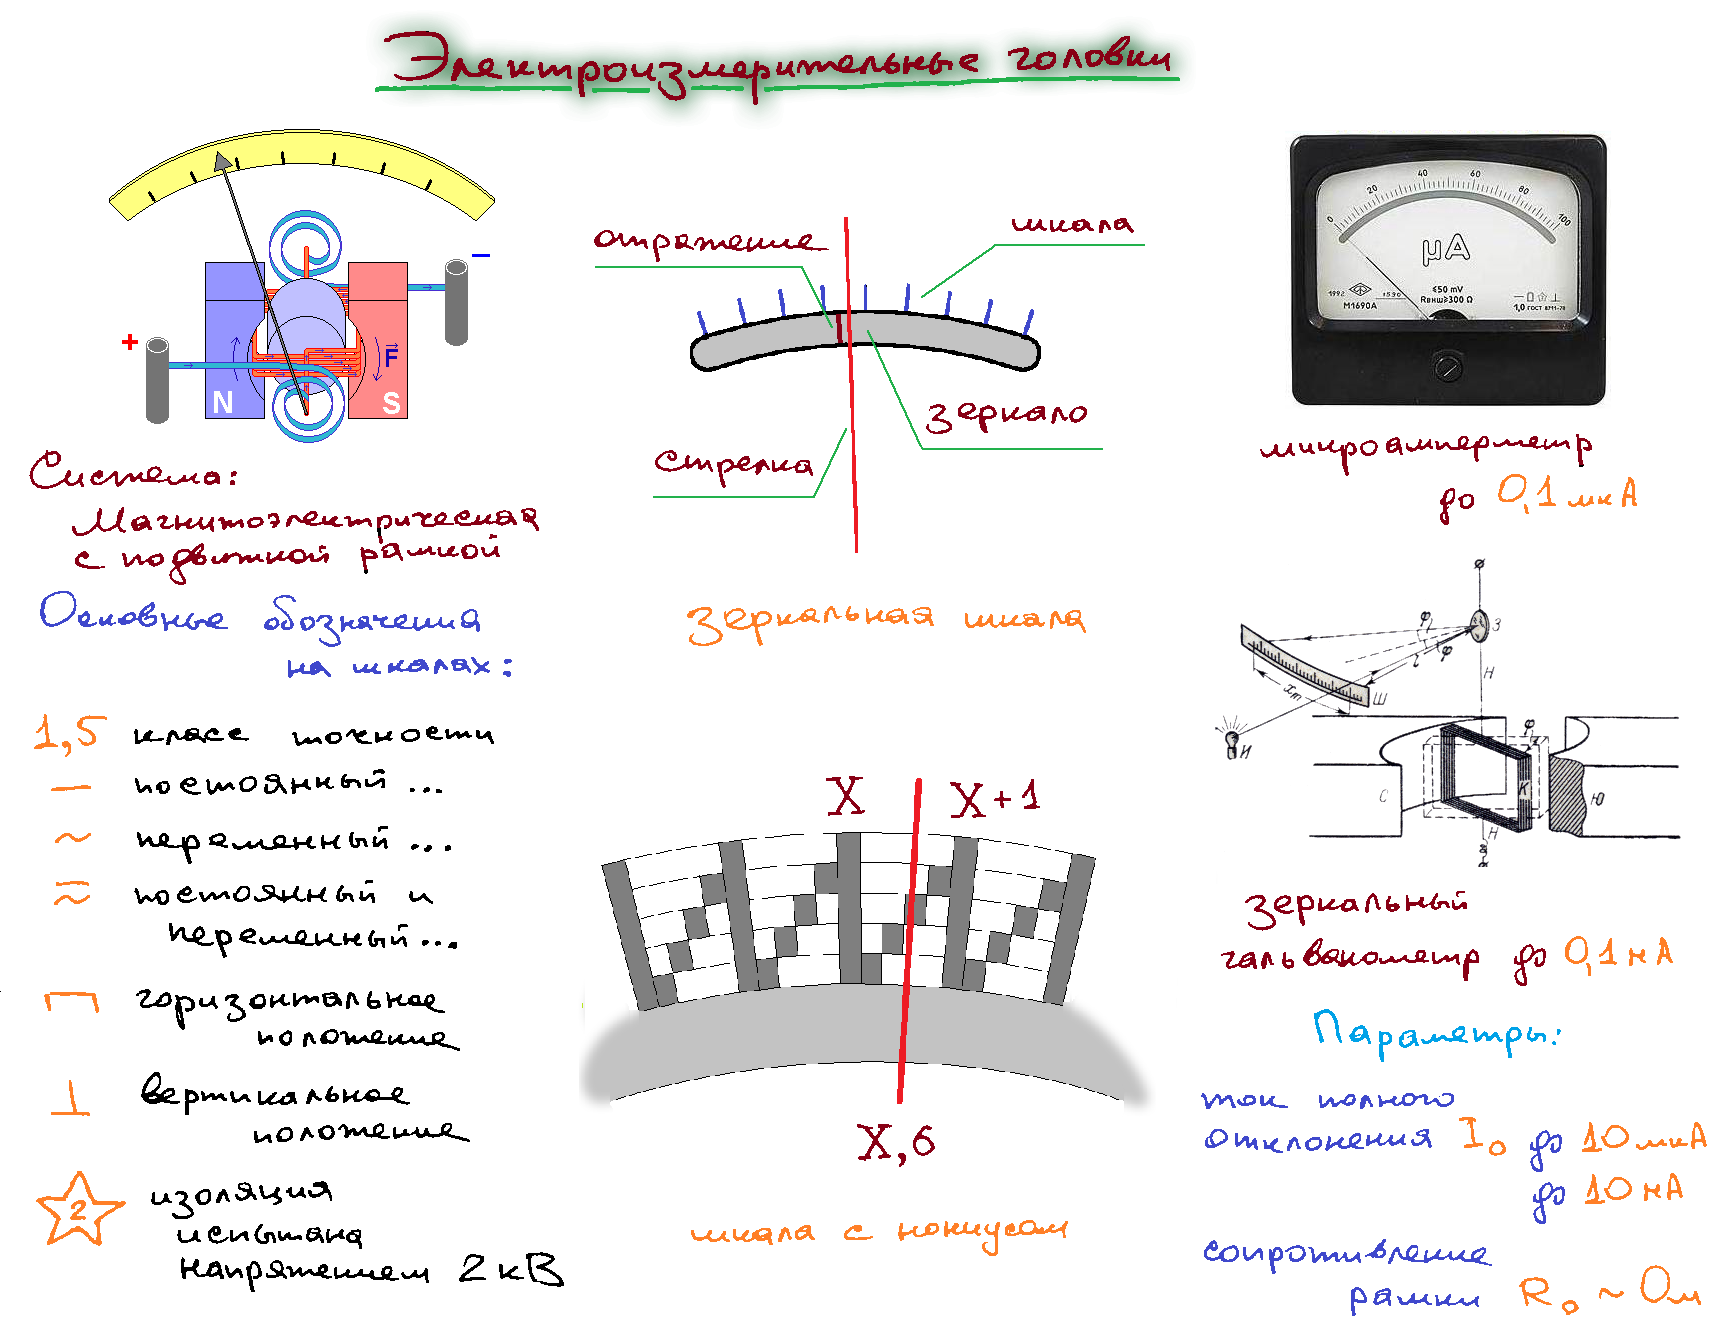 Электроизмерительные головки
+
−
N
S
F
Система:
Магнитоэлектрическая
с подвижной рамкой
Основные обозначения
на шкалах:
1,5 класс точности
— постоянный ...
~ переменный ...
постоянный и
переменный ...
горизонтальное
положение
⊥ вертикальное
положение
2 изоляция
испытана
напряжением 2кВ
отражение
шкала
зеркало
стрелка
зеркальная шкала
X
X+1
X,6
шкала с нониусом
0 20 40 60 80 100
μA
≤50 mV
Rвнш≥300 Ω
1992
М1690А
1,0 ГОСТ 8711-78
микроамперметр
до 0,1мкА
З
φ
φ
l
Н
xm
Ш
И
φ
С
К
Ю
Н
зеркальный
гальванометр до 0,1нА
Параметры:
ток полного
отклонения I₀ до 10мкА
до 10нА
сопротивление
рамки R₀ ~ Ом